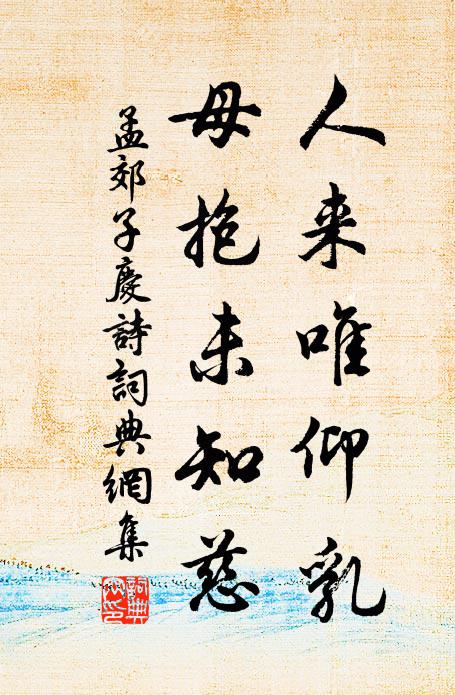 人来唯仰乳
母抱未知慈
孟郊子慶詩詞典網集